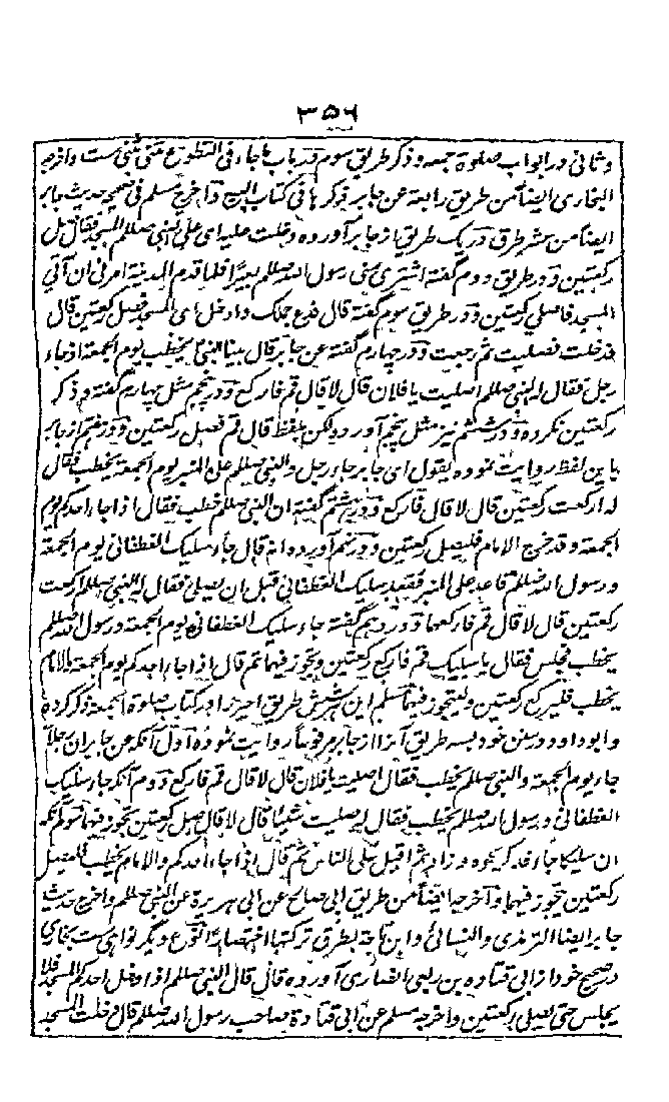 ۳۵۶
وثانی در ابواب صلوة جمعه و ذکر طریق سوم در باب ما جاء فی التطوع مثنی مثنی ست و اخرجه
البخاری ایضاً من طریق رابعة عن جابر ذکرها فی کتاب البیع و اخرج مسلم فی صحیحه حدیث جابر
ایضاً من عشر طرق در یک طریق از جابر آورده دخلت علیه ای علی النبی صلعم المسجد فقال صل
رکعتین و در طریق دوم گفته اشتری منی رسول الله صلعم بعیراً فلما قدم المدینة امرنی ان آتی
المسجد فاصلی رکعتین و در طریق سوم گفته قال فدع جملک و ادخل ای المسجد فصل رکعتین قال
فدخلت فصلیت ثم رجعت و در چهارم گفته عن جابر قال بینا النبی یخطب یوم الجمعة اذ جاء
رجل فقال له النبی صلعم اصلیت یا فلان قال لا قال قم فارکع و در پنجم مثل چهارم گفته و ذکر
رکعتین نکرده و در ششم نیز مثل پنجم آورده لکن بلفظ قال قم فصل رکعتین و در هفتم از جابر
باین لفظ روایت نموده یقول ای جابر جاء رجل و النبی صلعم علی المنبر یوم الجمعة یخطب فقال
له ارکعت رکعتین قال لا قال فارکع و در هشتم گفته ان النبی صلعم خطب فقال اذا جاء احدکم یوم
الجمعة و قد خرج الامام فلیصل رکعتین و در نهم آورده انه قال جاء سلیک الغطفانی یوم الجمعة
و رسول الله صلعم قاعد علی المنبر فقعد سلیک الغطفانی قبل ان یصلی فقال له النبی صلعم ارکعت
رکعتین قال لا قال قم فارکعهما و در دهم گفته جاء سلیک الغطفانی یوم الجمعة و رسول الله صلعم
یخطب فجلس فقال یا سلیک قم فارکع رکعتین و تجوز فیهما ثم قال اذا جاء احدکم یوم الجمعة و الامام
یخطب فلیرکع رکعتین و لیتجوز فیهما مسلم این شش طریق اخیر را در کتاب صلوة الجمعة ذکر کرده
و ابو داود در سنن خود بسه طریق آنرا از جابر مرفوعاً روایت نموده اول آنکه عن جابر ان رجلاً
جاء یوم الجمعة و النبی صلعم یخطب فقال اصلیت یا فلان قال لا قال قم فارکع دوم آنکه جاء سلیک
الغطفانی و رسول الله صلعم یخطب فقال له صلیت شیئا قال لا قال صل رکعتین تجوز فیهما سوم آنکه
ان سلیکا جاء فذکر نحوه و زاد ثم اقبل علی الناس ثم قال اذا جاء احدکم و الامام یخطب فلیصل
رکعتین یتجوز فیهما و اخرجه ایضاً من طریق ابی صالح عن ابی هریرة عن النبی صلعم و اخرج حدیث
جابر ایضا الترمذی و النسائی و ابن ماجة بطرق ترکتها اختصارا نوع دیگر نواهی ست بخاری
در صحیح خود از ابی قتاده بن ربعی انصاری آورده قال قال النبی صلعم اذا دخل احدکم المسجد فلا
یجلس حتی یصلی رکعتین و اخرجه مسلم عن ابی قتادة صاحب رسول الله صلعم قال دخلت المسجد